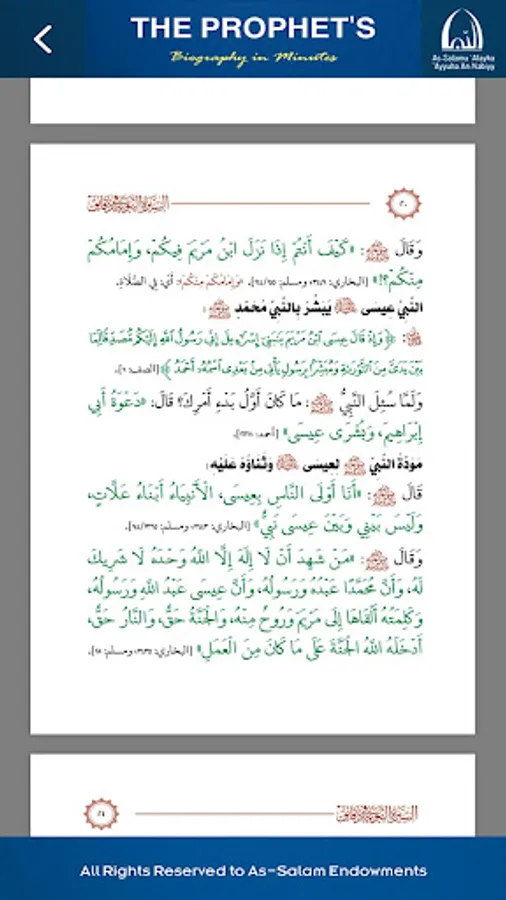 THE PROPHET'S
Biography in Minutes
As-Salamu 'Alayka
'Ayyuha An-Nabiyy
السيرة النبوية في دقائق
٢٠
وَقَالَ ﷺ: «كَيْفَ أَنْتُمْ إِذَا نَزَلَ ابْنُ مَرْيَمَ فِيكُمْ، وَإِمَامُكُمْ
مِنْكُمْ؟!» [البخاري: ٣٤٤٩، ومسلم: ١٥٥]. «وَإِمَامُكُمْ مِنْكُمْ»: أَيْ: فِي الصَّلَاةِ.
النَّبِيُّ عِيسَى ﷺ يُبَشِّرُ بِالنَّبِيِّ مُحَمَّدٍ ﷺ:
﴿وَإِذْ قَالَ عِيسَى ابْنُ مَرْيَمَ يَٰبَنِيٓ إِسْرَٰٓءِيلَ إِنِّي رَسُولُ ٱللَّهِ إِلَيْكُم مُّصَدِّقًا لِّمَا
بَيْنَ يَدَيَّ مِنَ ٱلتَّوْرَىٰةِ وَمُبَشِّرًۢا بِرَسُولٍ يَأْتِي مِنۢ بَعْدِي ٱسْمُهُۥٓ أَحْمَدُ﴾ [الصف: ٦].
وَلَمَّا سُئِلَ النَّبِيُّ ﷺ: مَا كَانَ أَوَّلُ بَدْءِ أَمْرِكَ؟ قَالَ: «دَعْوَةُ أَبِي
إِبْرَاهِيمَ، وَبُشْرَى عِيسَى» [أحمد:].
مَوَدَّةُ النَّبِيِّ ﷺ لِعِيسَى ﷺ وَثَنَاؤُهُ عَلَيْهِ:
قَالَ ﷺ: «أَنَا أَوْلَى النَّاسِ بِعِيسَى، الْأَنْبِيَاءُ أَبْنَاءُ عَلَّاتٍ،
وَلَيْسَ بَيْنِي وَبَيْنَ عِيسَى نَبِيٌّ» [البخاري: ٣٤٤٢، ومسلم:].
وَقَالَ ﷺ: «مَنْ شَهِدَ أَنْ لَا إِلَهَ إِلَّا اللَّهُ وَحْدَهُ لَا شَرِيكَ
لَهُ، وَأَنَّ مُحَمَّدًا عَبْدُهُ وَرَسُولُهُ، وَأَنَّ عِيسَى عَبْدُ اللَّهِ وَرَسُولُهُ،
وَكَلِمَتُهُ أَلْقَاهَا إِلَى مَرْيَمَ وَرُوحٌ مِنْهُ، وَالْجَنَّةُ حَقٌّ، وَالنَّارُ حَقٌّ،
أَدْخَلَهُ اللَّهُ الْجَنَّةَ عَلَى مَا كَانَ مِنَ الْعَمَلِ» [البخاري: ٣٤٣٥، ومسلم:].
السيرة النبوية في دقائق
٢١
All Rights Reserved to As-Salam Endowments